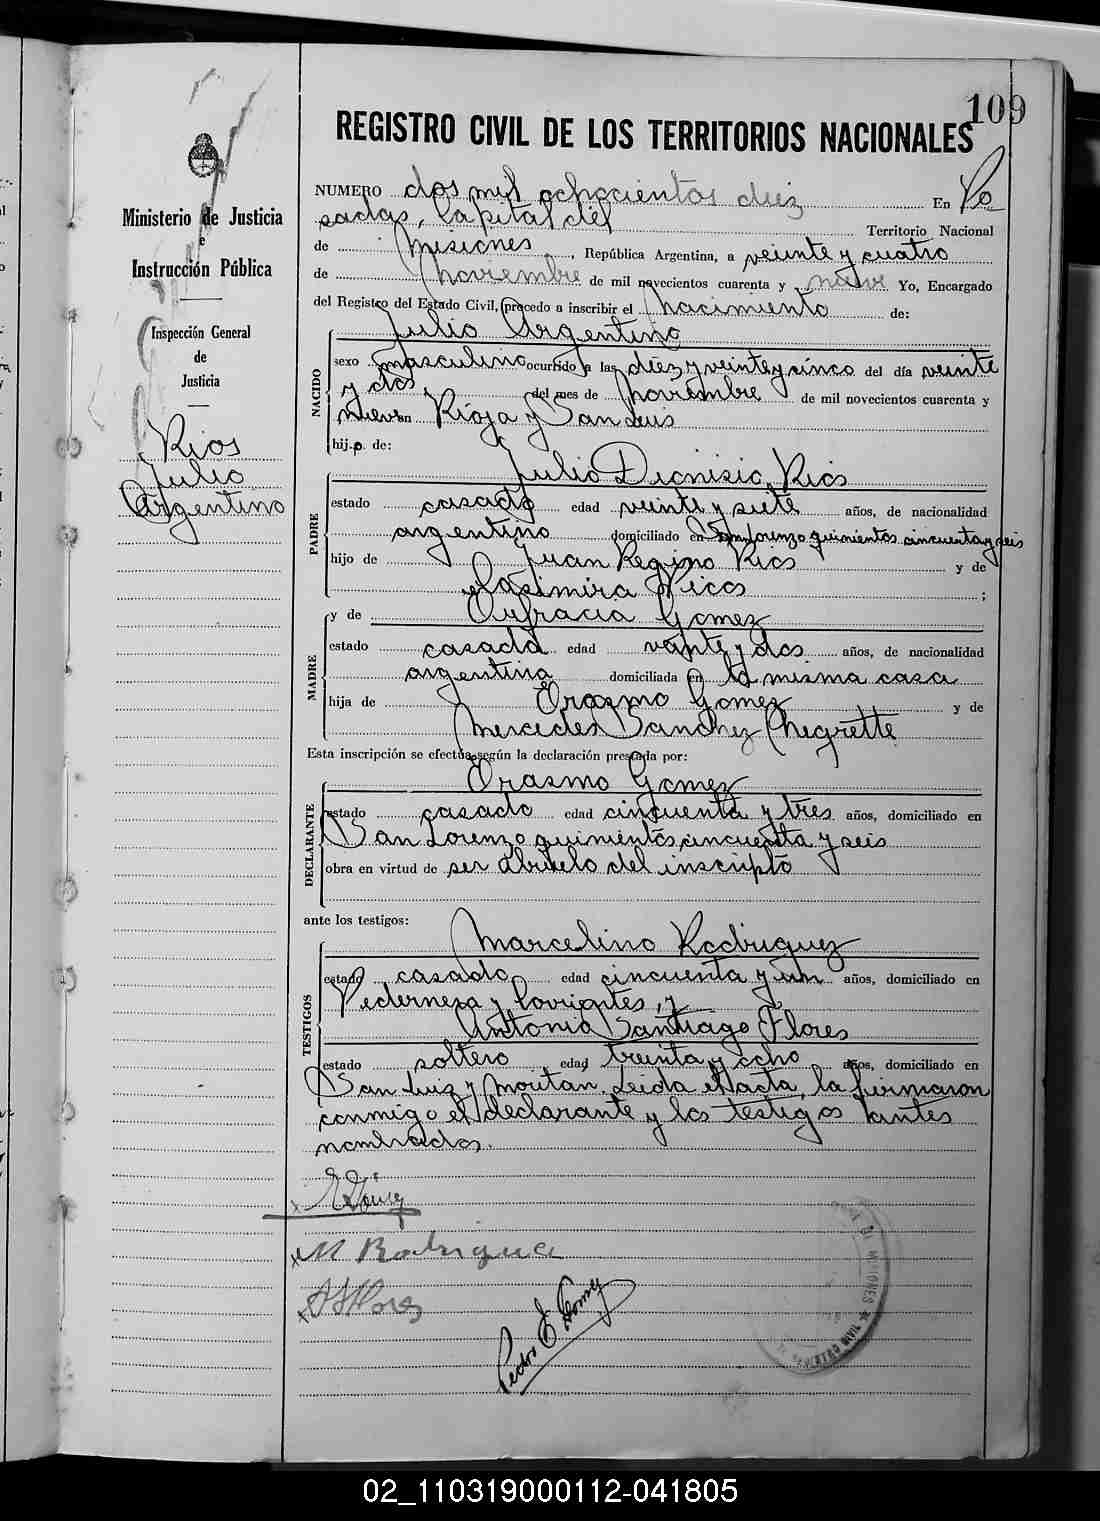 109
REGISTRO CIVIL DE LOS TERRITORIOS NACIONALES
Ministerio de Justicia
e
Instrucción Pública
Inspección General
de
Justicia
Rios
Julio
Argentino
NUMERO dos mil ochocientos diez En Po
sadas, Capital del Territorio Nacional
de Misiones, República Argentina, a veinte y cuatro
de noviembre de mil novecientos cuarenta y nueve Yo, Encargado
del Registro del Estado Civil, procedo a inscribir el nacimiento de:
Julio Argentino
NACIDO
sexo masculino ocurrido a las diez y veinte y cinco del día veinte
y dos, del mes de noviembre de mil novecientos cuarenta y
nueve en Rioja y San Luis
hijo de:
Julio Dionisio Rios
PADRE
estado casado edad veinte y siete años, de nacionalidad
argentino domiciliado en San Lorenzo quinientos cincuenta y seis
hijo de Juan Regino Rios y de
Casimira ;
y de Eufracia Gomez
MADRE
estado casada edad veinte y dos años, de nacionalidad
argentina domiciliada en la misma casa
hija de Erasmo Gomez y de
Mercedes Sanchez Negrette
Esta inscripción se efectúa según la declaración prestada por:
Erasmo Gomez
DECLARANTE
estado casado edad cincuenta y tres años, domiciliado en
San Lorenzo quinientos cincuenta y seis
obra en virtud de ser abuelo del inscripto
ante los testigos:
Marcelino Rodriguez
TESTIGOS
estado casado edad cincuenta y un años, domiciliado en
Pedernera y Corrientes, y
Antonio Santiago Flores
estado soltero edad treinta y ocho años, domiciliado en
San Luiz y Moritan. Leida el acta, la firmaron
conmigo el declarante y los testigos antes
nombrados.
M Rodrigue
Pedro E Gomez
DE MISIONES
REGISTRO CIVIL
02_110319000112-041805